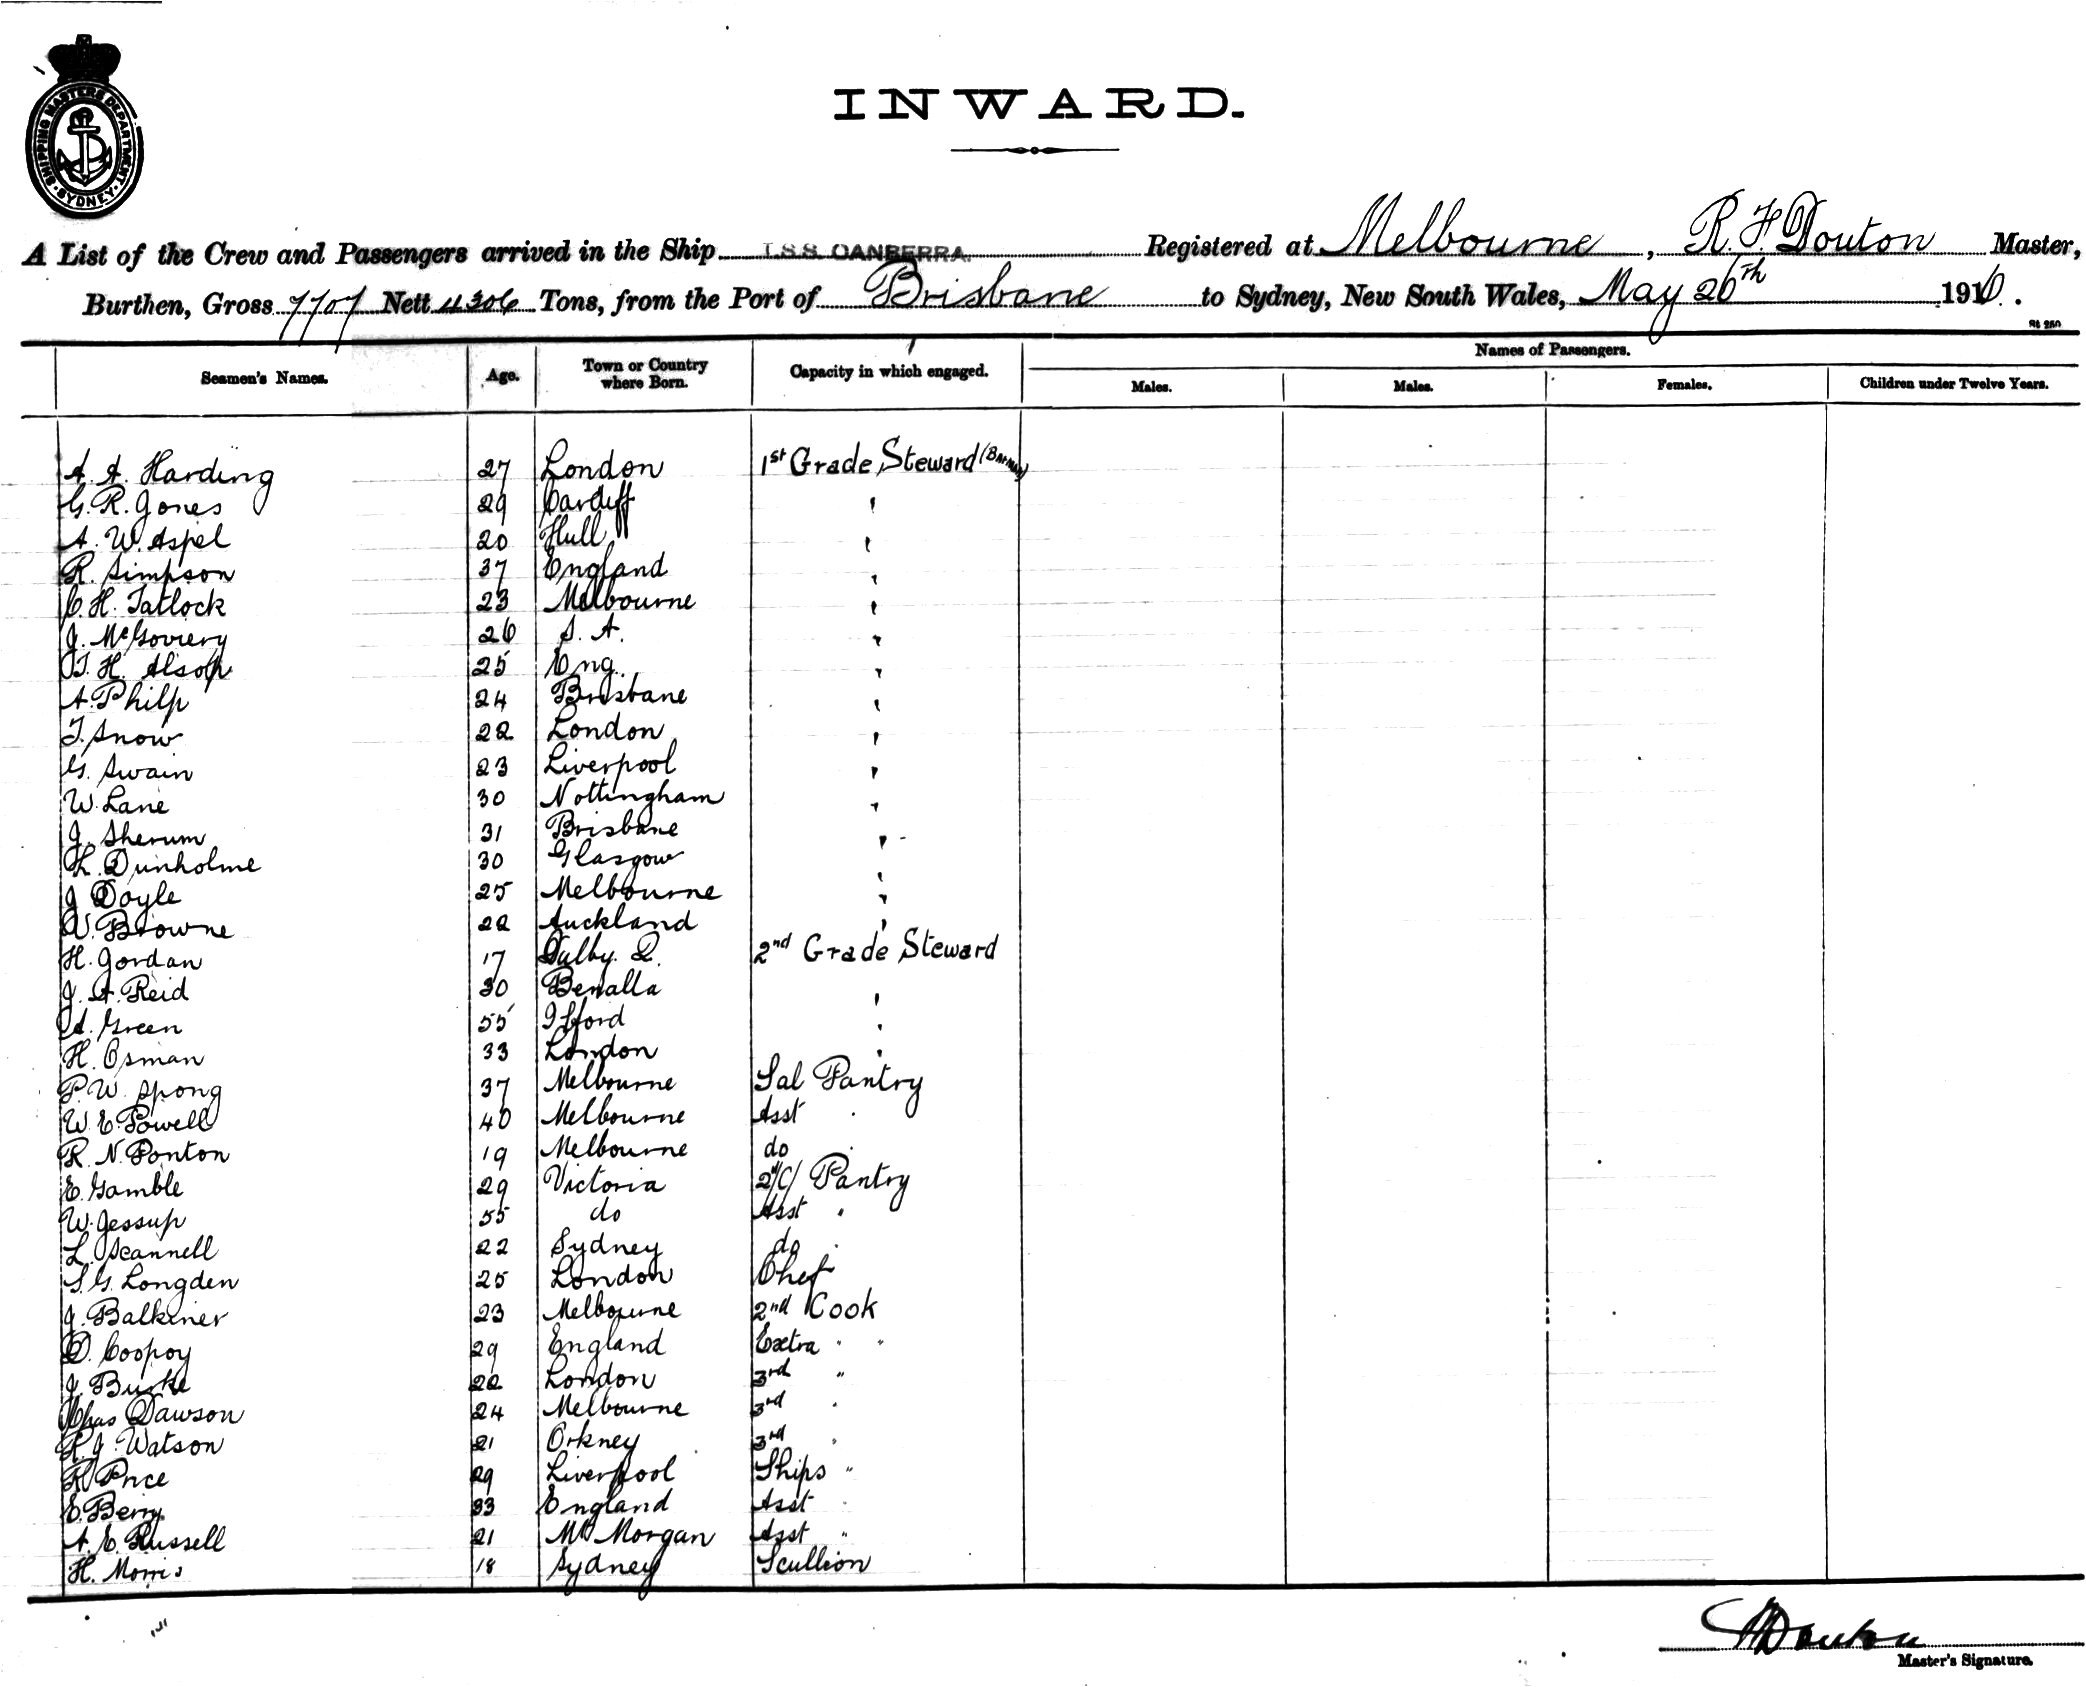 SHIPPING MASTERS DEPARTMENT · SYDNEY ·
INWARD.
A List of the Crew and Passengers arrived in the Ship T.S.S. CANBERRA. Registered at Melbourne, R. F. Douton Master,
Burthen, Gross 7707 Nett 4306 Tons, from the Port of Brisbane to Sydney, New South Wales, May 26th 1916.
St 250
Seamen's Names. Age. Town or Country where Born. Capacity in which engaged. Names of Passengers.
Males. Males. Females. Children under Twelve Years.
A. A. Harding 27 London 1st Grade Steward (Barman)
G. R. Jones 29 Cardiff "
A. W. Aspel 20 Hull "
R. Simpson 37 England "
C. H. Tatlock 23 Melbourne "
J. McGoviery 26 S. A. "
T. H. Alsop 25 Eng. "
A. Philp 24 Brisbane "
T. Snow 22 London "
G. Swain 23 Liverpool "
W. Lane 30 Nottingham "
J. Sherum 31 Brisbane "
L. Dunholme 30 Glasgow "
J Doyle 25 Melbourne "
W. Browne 22 Auckland "
H. Jordan 17 Dalby. Q. 2nd Grade Steward
J. A. Reid 30 Benalla "
A. Green 55 Ilford "
H. Osman 33 London "
P. W. Spong 37 Melbourne Sal Pantry
W. E. Powell 40 Melbourne Asst "
R. N. Ponton 19 Melbourne do "
E. Gamble 29 Victoria 2/C/ Pantry
W. Jessup 55 do Asst "
L. Scannell 22 Sydney do "
S. G. Longden 25 London Chef
J. Balkiner 23 Melbourne 2nd Cook
D. Coopoy 29 England Extra " "
J. Burke 22 London 3rd "
Chas Dawson 24 Melbourne 3rd "
R. J. Watson 21 Orkney 3rd "
R Price 29 Liverpool Ships "
E. Berry 33 England Asst "
A. E. Russell 21 Mt Morgan Asst "
H. Morris 18 Sydney Scullion
Douton
Master's Signature.